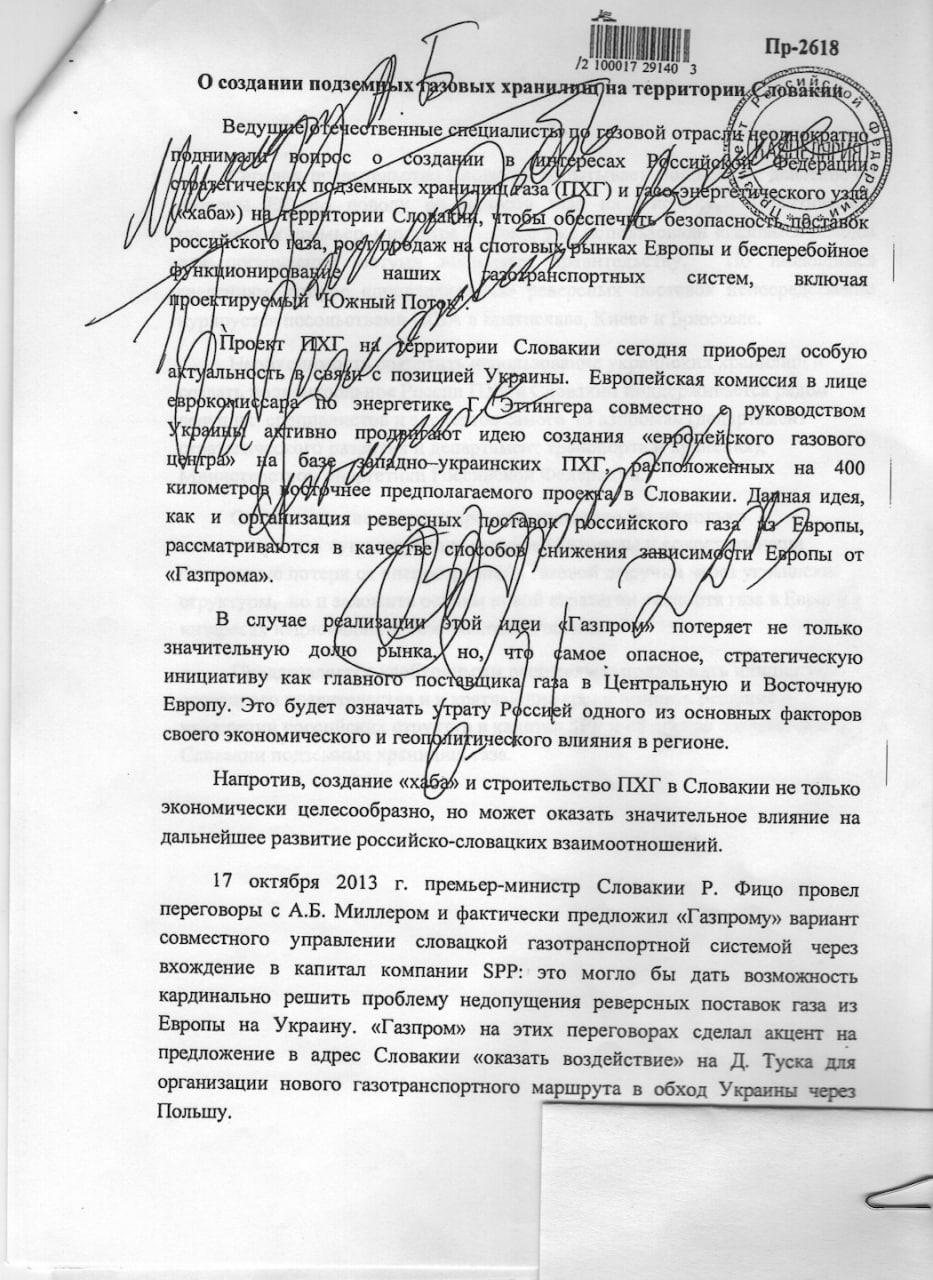 /2 100017 29140 3
Пр-2618
О создании подземных газовых хранилищ на территории Словакии
Президент Российской Федерации
Миллеру А Б
Ведущие отечественные специалисты по газовой отрасли неоднократно
поднимали вопрос о создании в интересах Российской Федерации
стратегических подземных хранилищ газа (ПХГ) и газо-энергетического узла
(«хаба») на территории Словакии, чтобы обеспечить безопасность поставок
российского газа, рост продаж на спотовых рынках Европы и бесперебойное
функционирование наших газотранспортных систем, включая
проектируемый "Южный Поток".
Проект ПХГ на территории Словакии сегодня приобрел особую
актуальность в связи с позицией Украины. Европейская комиссия в лице
еврокомиссара по энергетике Г. Эттингера совместно с руководством
Украины активно продвигают идею создания «европейского газового
центра» на базе западно–украинских ПХГ, расположенных на 400
километров восточнее предполагаемого проекта в Словакии. Данная идея,
как и организация реверсных поставок российского газа из Европы,
рассматриваются в качестве способов снижения зависимости Европы от
«Газпрома».
В случае реализации этой идеи «Газпром» потеряет не только
значительную долю рынка, но, что самое опасное, стратегическую
инициативу как главного поставщика газа в Центральную и Восточную
Европу. Это будет означать утрату Россией одного из основных факторов
своего экономического и геополитического влияния в регионе.
Напротив, создание «хаба» и строительство ПХГ в Словакии не только
экономически целесообразно, но может оказать значительное влияние на
дальнейшее развитие российско-словацких взаимоотношений.
17 октября 2013 г. премьер-министр Словакии Р. Фицо провел
переговоры с А.Б. Миллером и фактически предложил «Газпрому» вариант
совместного управлении словацкой газотранспортной системой через
вхождение в капитал компании SPP: это могло бы дать возможность
кардинально решить проблему недопущения реверсных поставок газа из
Европы на Украину. «Газпром» на этих переговорах сделал акцент на
предложение в адрес Словакии «оказать воздействие» на Д. Туска для
организации нового газотранспортного маршрута в обход Украины через
Польшу.